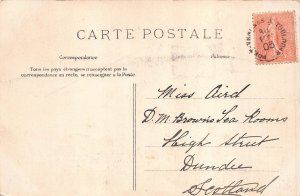 CARTE POSTALE
Correspondance
Tous les pays étrangers n'acceptent pas la
correspondance au recto, se renseigner à la Poste.
Adresse
Miss Aird
D. M. Browns Tea Rooms
High Street
Dundee
Scotland